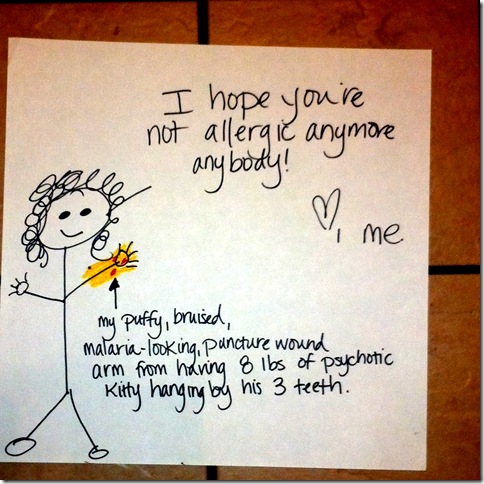 I hope you're
not allergic anymore
anybody!
♡, me.
my puffy, bruised,
malaria-looking, puncture wound
arm from having 8 lbs of psychotic
kitty hanging by his 3 teeth.